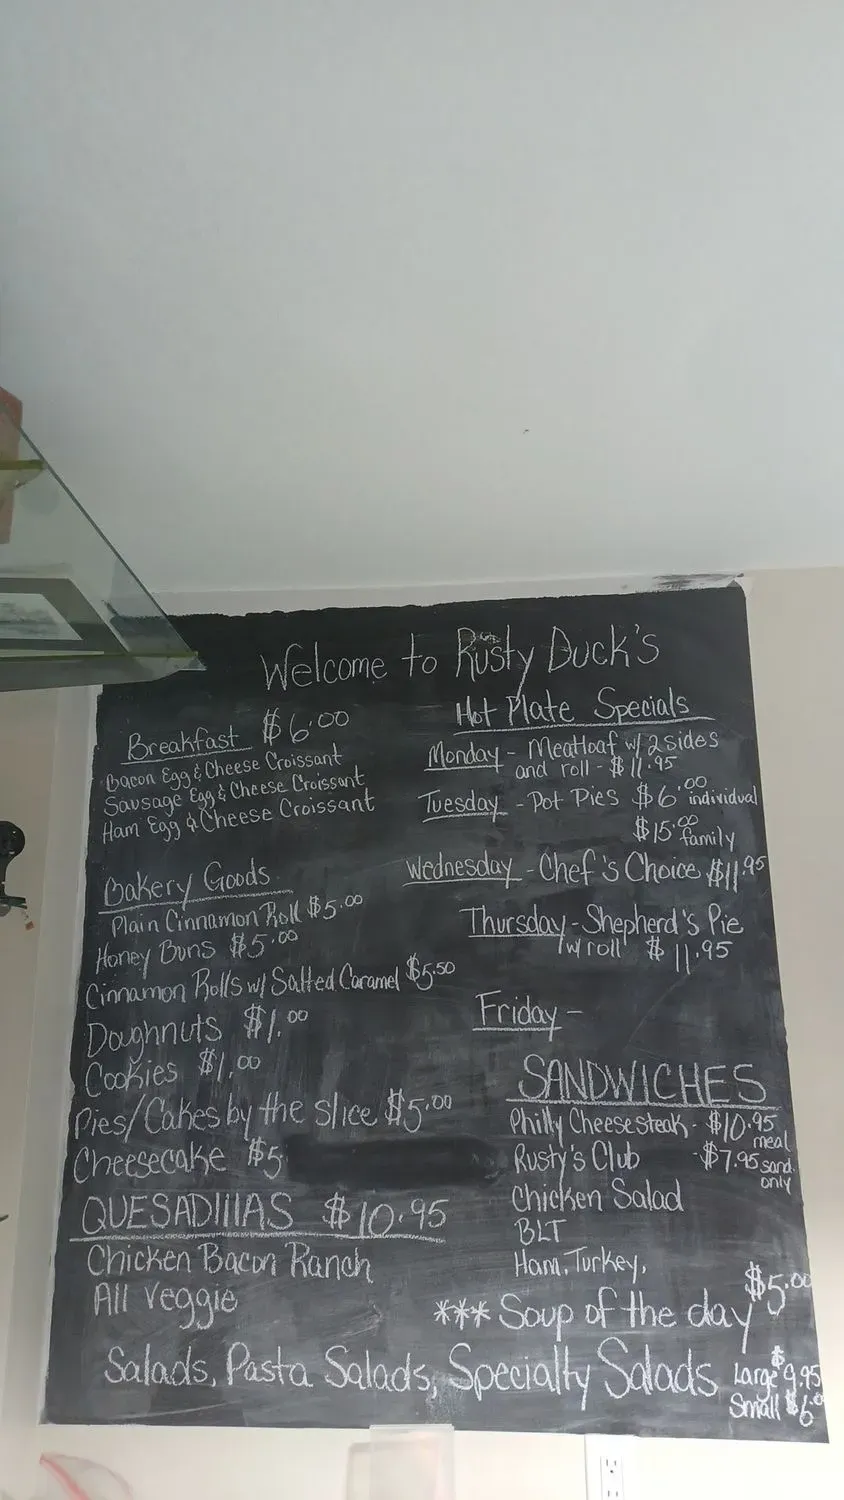 Welcome to Rusty Duck's
Breakfast $6.00
Bacon Egg & Cheese Croissant
Sausage Egg & Cheese Croissant
Ham Egg & Cheese Croissant
Bakery Goods
Plain Cinnamon Roll $5.00
Honey Buns $5.00
Cinnamon Rolls w/ Salted Caramel $5.50
Doughnuts $1.00
Cookies $1.00
Pies/Cakes by the slice $5.00
Cheesecake $5
QUESADIllAS $10.95
Chicken Bacon Ranch
All Veggie
Hot Plate Specials
Monday - Meatloaf w/ 2 sides
and roll - $11.95
Tuesday - Pot Pies $6.00 individual
$15.00 family
Wednesday - Chef's Choice $11.95
Thursday - Shepherd's Pie
w/ roll $11.95
Friday -
SANDWICHES
Philly Cheesesteak - $10.95
meal
Rusty's Club - $7.95 sand.
only
Chicken Salad
BLT
Ham, Turkey,
*** Soup of the day $5.00
Salads, Pasta Salads, Specialty Salads Large $9.95
Small $6.00